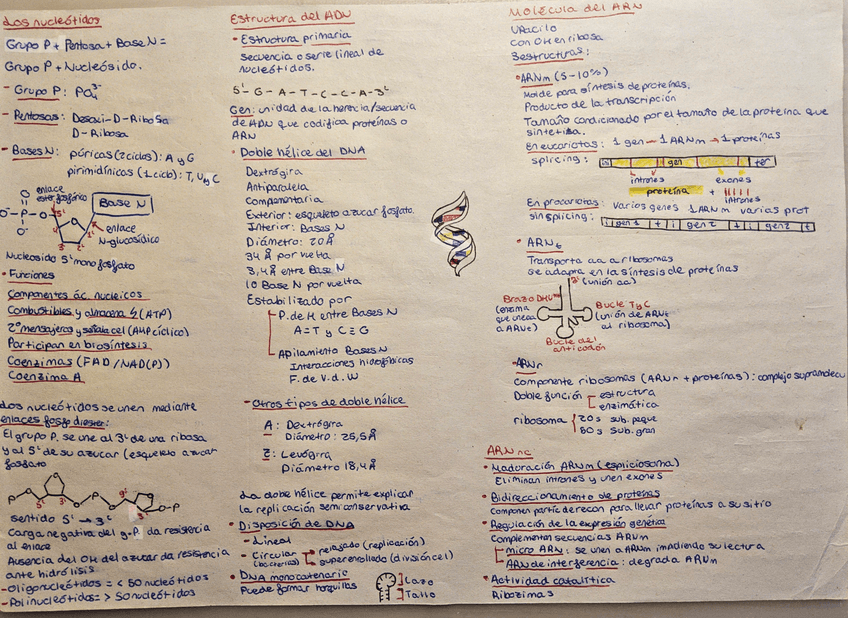 Los nucleótidos
Grupo P + Pentosa + Base N =
Grupo P + Nucleósido.
- Grupo P: PO₄³⁻
- Pentosas: Desoxi-D-Ribosa
D-Ribosa
- Bases N: púricas (2 ciclos): A y G
pirimidínicas (1 ciclo): T, U y C
enlace
ester fosfórico
O
O⁻-P-O
O⁻
5'
O
Base N
enlace
N-glucosídico
3' 2' 1'
Nucleosido 5' monofosfato
• Funciones
Componentes ác. nucleicos
Combustibles y almacena (ATP)
2º mensajeros y señala cel (AMP cíclico)
Participan en biosíntesis
Coenzimas (FAD/NAD(P))
Coenzima A
Los nucleótidos se unen mediante
enlaces fosfodiester:
El grupo P. se une al 3' de una ribosa
y al 5' de su azucar (esqueleto azucar
fosfato
P 5' 3' O P O 5' 3' O-P
sentido 5' → 3'
Carga negativa del g.P. da resistencia
al enlace
Ausencia del OH del azucar da resistencia
ante hidrólisis
- Oligonucleótidos = < 50 nucleótidos
- Polinucleótidos = > 50 nucleótidos
Estructura del ADN
• Estructura primaria
secuencia o serie lineal de
nucleótidos.
5' - G - A - T - C - C - A - 3'
Gen: unidad de la herencia/secuencia
de ADN que codifica proteínas o
ARN
• Doble hélice del DNA
Dextrógira
Antiparalela
Complementaria
Exterior: esqueleto azucar fosfato.
Interior: Bases N
Diámetro: 20 Å
34 Å por vuelta
3,4 Å entre Base N
10 Base N por vuelta
Estabilizado por
P. de H entre Bases N
A=T y C≡G
Apilamiento Bases N
Interacciones hidrofóbicas
F. de V.d.W
- Otros tipos de doble hélice
A: Dextrógira
Diámetro: 25,5 Å
Z: Levógira
Diámetro 18,4 Å
La dobe hélice permite explicar
la replicación semiconservativa
• Disposición de DNA
- Lineal
- Circular
(bacterias)
relajado (replicación)
superenrollado (división cel)
• DNA monocatenario
Puede formar horquillas
Lazo
Tallo
Molécula del ARN
Uracilo
con OH en ribosa
3 estructuras:
• ARNm (5-10%)
Molde para síntesis de proteínas.
Producto de la transcripción
Tamaño condicionado por el tamaño de la proteína que
sintetisa.
En eucariotas: 1 gen → 1 ARNm → 1 proteínas
splicing:
gen
ter
intrones
exones
proteína
+
intrones
En procariotas: varios genes 1 ARNm varias prot
sin splicing:
i gen 1 t i gen 2 t i gen 2 t
• ARNt
Transporta aa a ribosomas
se adapta en la síntesis de proteínas
3' (unión aa)
Brazo DHU
(enzima
que une aa
a ARNt)
Bucle TψC
(unión de ARNt
al ribosoma)
Bucle del
anticodón
- ARNr
Componente ribosomas (ARNr + proteínas): complejo supramolecu
Doble función
estructura
enzimática
ribosoma
sub. peque
sub. gran
ARNnc
• Maduración ARNm (espliciosoma)
Eliminan intrones y unen exones
• Bidireccionamiento de proteínas
Componen partíc de recon para llevar proteínas a su sitio
• Regulación de la expresión genética
Complementan secuencias ARNm
micro ARN: se unen a ARNm impidiendo su lectura
ARN de interferencia: degrada ARNm
• Actividad catalítica
Ribozimas